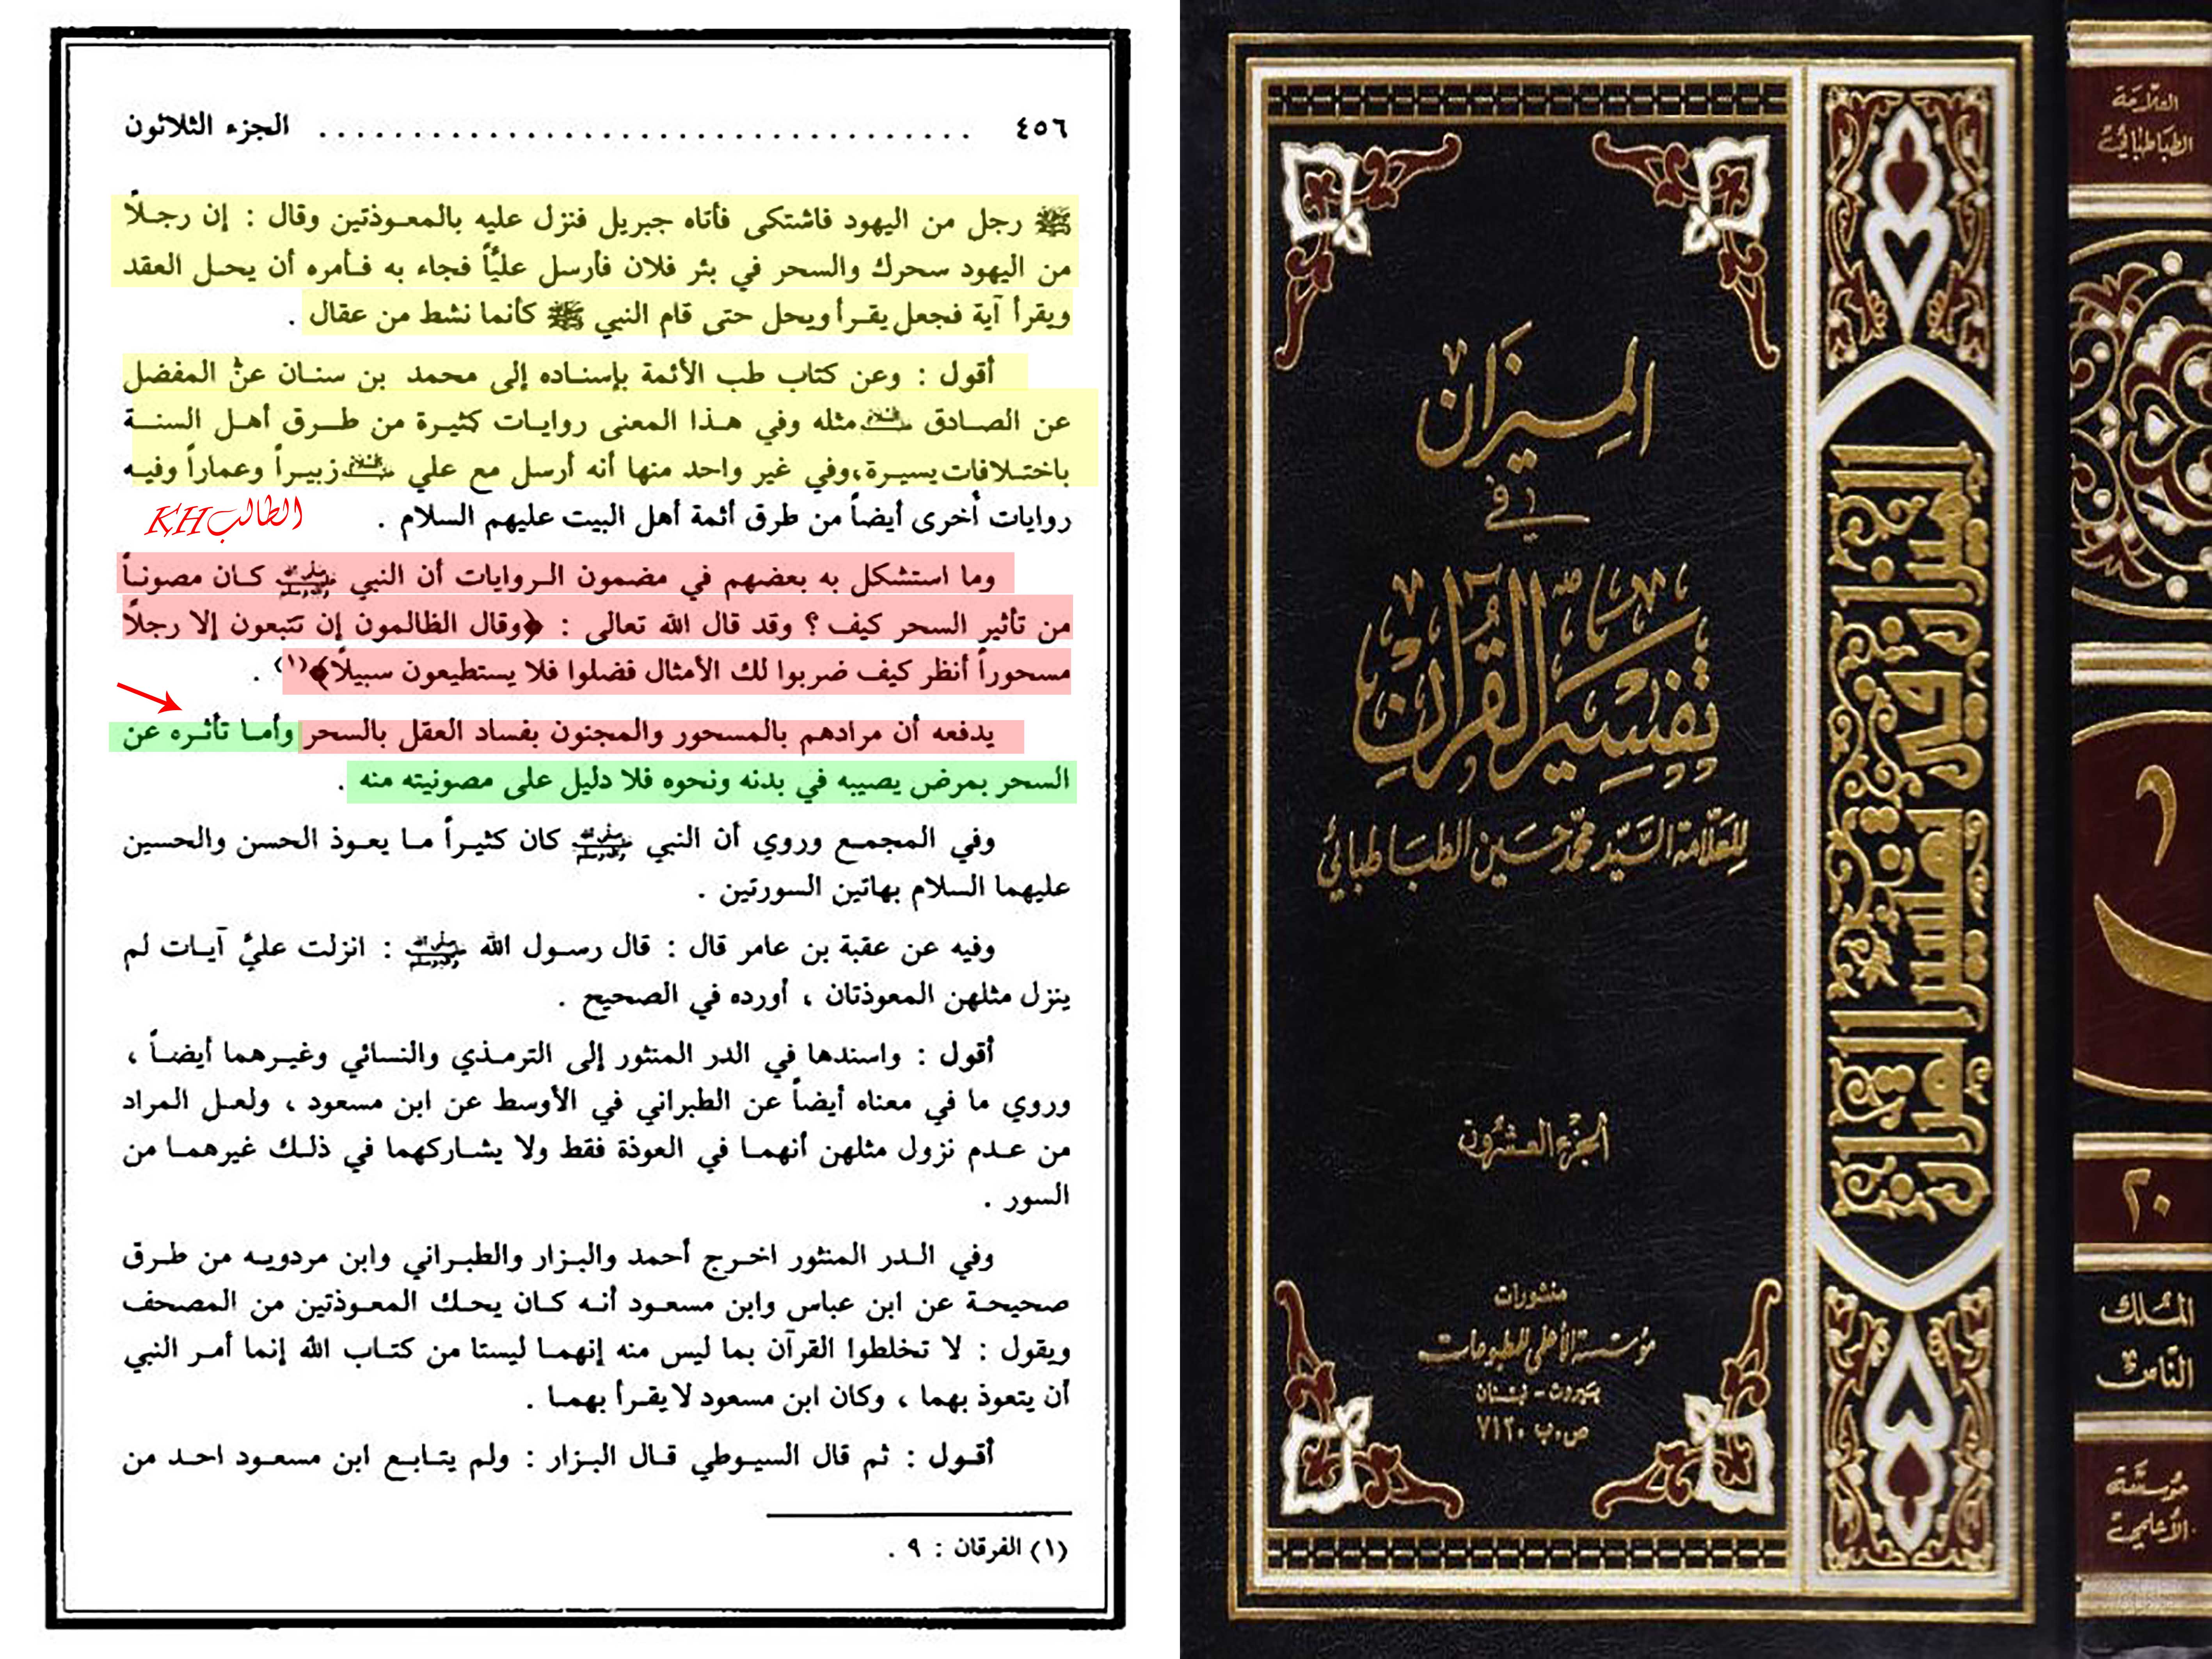 ٤٥٦ ..................................... الجزء الثلاثون
ﷺ رجل من اليهود فاشتكى فأتاه جبريل فنزل عليه بالمعـوذتين وقال : إن رجـلاً
من اليهود سحرك والسحر في بئر فلان فأرسل عليّاً فجاء به فـأمره أن يحـل العقد
ويقرأ آية فجعل يقـرأ ويحل حتى قام النبي ﷺ كأنما نشط من عقال .
أقول : وعن كتاب طب الأئمة بإسنـاده إلى محمد بن سنـان عن المفضل
عن الصـادق عليه السلام مثله وفي هـذا المعنى روايـات كثيـرة من طـرق أهـل السنـة
باختـلافات يسيـرة، وفي غير واحد منها أنه أرسل مع علي عليه السلام زبيـراً وعماراً وفيـه
روايات أخرى أيضاً من طرق أئمة أهل البيت عليهم السلام .
الطالب KH
وما استشكل به بعضهم في مضمون الـروايات أن النبي صلى الله عليه وآله وسلم كـان مصونـاً
من تأثير السحر كيف ؟ وقد قال الله تعالى : ﴿وقال الظالمون إن تتبعون إلا رجلاً
مسحوراً أنظر كيف ضربوا لك الأمثال فضلوا فلا يستطيعون سبيلاً﴾(١) .
يدفعه أن مرادهم بالمسحور والمجنون بفساد العقل بالسحر وأمـا تأثـره عن
السحر بمرض يصيبه في بدنه ونحوه فلا دليل على مصونيته منه .
وفي المجمـع وروي أن النبي صلى الله عليه وآله وسلم كان كثيـراً مـا يعـوذ الحسن والحسين
عليهما السلام بهاتين السورتين .
وفيه عن عقبة بن عامر قال : قال رسـول الله صلى الله عليه وآله وسلم : انزلت عليّ آيـات لم
ينزل مثلهن المعوذتان ، أورده في الصحيح .
أقول : واسندها في الدر المنثور إلى الترمـذي والنسائي وغيـرهما أيضـاً ،
وروي ما في معناه أيضاً عن الطبراني في الأوسط عن ابن مسعود ، ولعـل المراد
من عـدم نزول مثلهن أنهمـا في العوذة فقط ولا يشـاركهما في ذلـك غيرهمـا من
السور .
وفي الـدر المنثور اخـرج أحمد والبـزار والطبـراني وابن مردويـه من طـرق
صحيحـة عن ابن عباس وابن مسعـود أنـه كـان يحـك المعـوذتين من المصحف
ويقول : لا تخلطوا القرآن بما ليس منه إنهمـا ليستا من كتـاب الله إنما أمـر النبي
أن يتعوذ بهما ، وكان ابن مسعود لا يقـرأ بهمـا .
أقـول : ثم قال السيـوطي قـال البـزار : ولم يتـابـع ابن مسعـود احـد من
(١) الفرقان : ٩ .
الميزان
في
تفسير القرآن
للعلامة السيد محمد حسين الطباطبائي
الجزء العشرون
منشورات
مؤسسة الأعلمي للمطبوعات
بيروت - لبنان
ص.ب ٧١٢٠
الميزان في تفسير القرآن
العلامة
الطباطبائي
٢٠
الملك
الناس
مؤسسة
الأعلمي